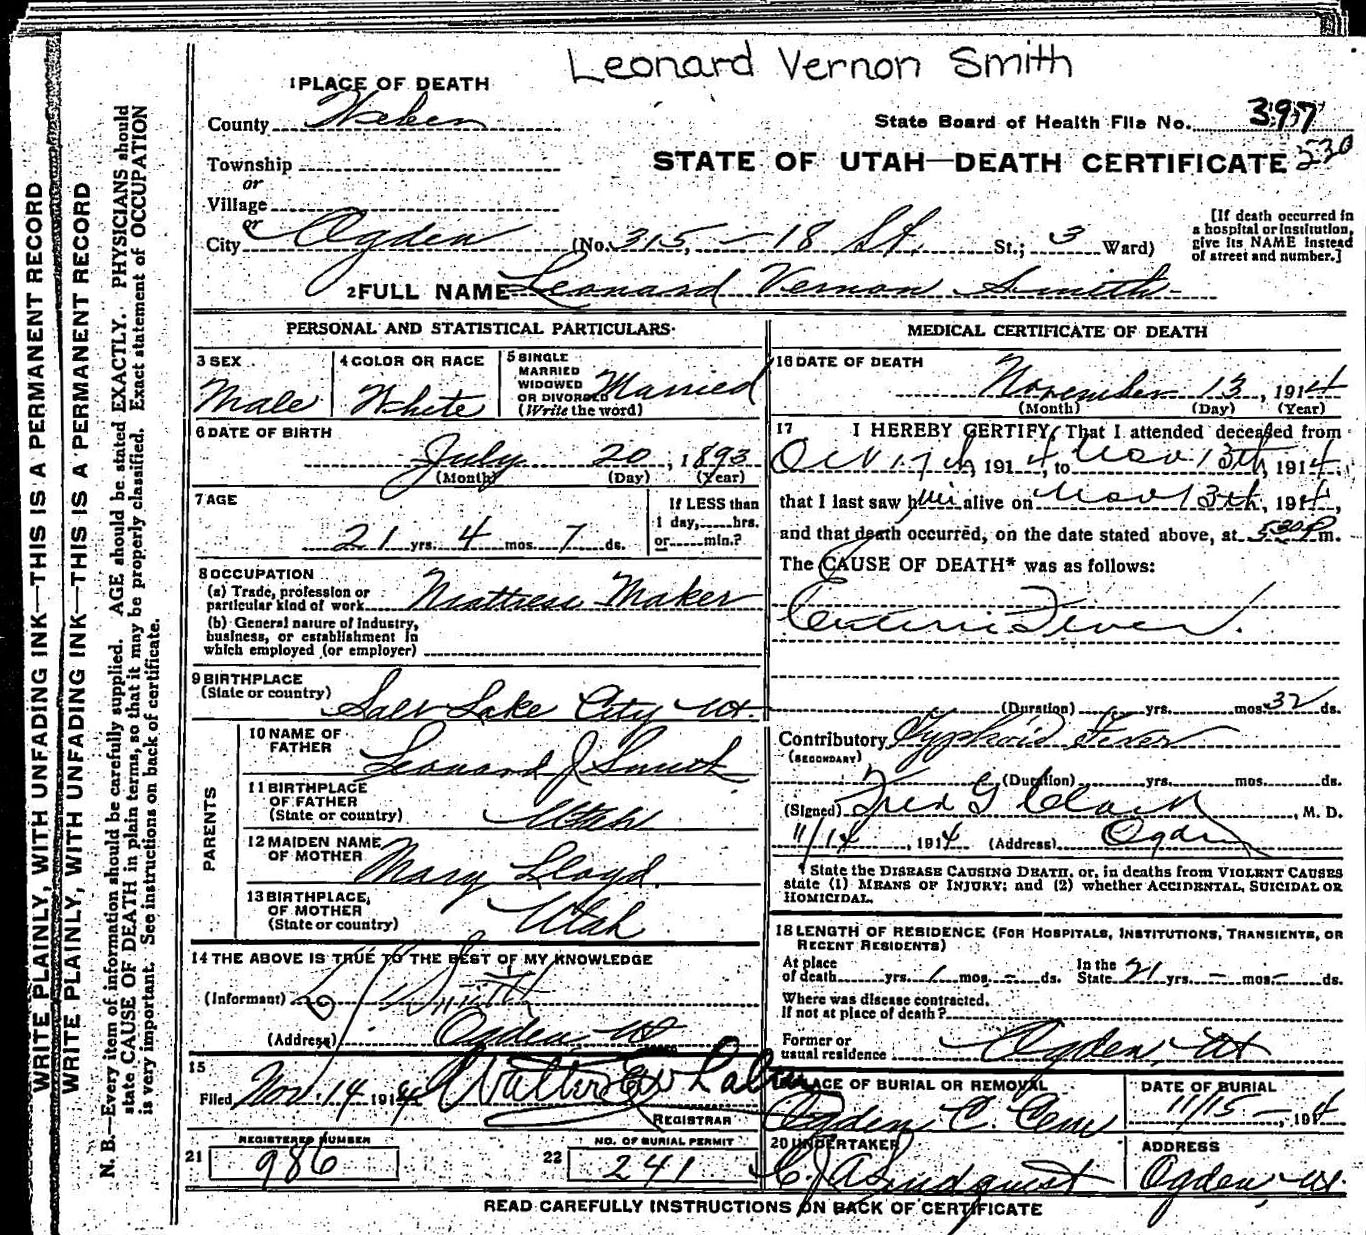 Leonard Vernon Smith
1 PLACE OF DEATH
County Weber
State Board of Health File No. 397
530
STATE OF UTAH—DEATH CERTIFICATE
Township
or
Village
or
City Ogden (No. 315, — 18 St. St.; 3 Ward)
[If death occurred in
a hospital or institution,
give its NAME instead
of street and number.]
2 FULL NAME Leonard Vernon Smith
PERSONAL AND STATISTICAL PARTICULARS
3 SEX
Male
4 COLOR OR RACE
White
5 SINGLE
MARRIED
WIDOWED
OR DIVORCED
(Write the word)
Married
6 DATE OF BIRTH
July 20, 1893
(Month) (Day) (Year)
7 AGE
21 yrs. 4 mos. 7 ds.
If LESS than
1 day, hrs.
or min.?
8 OCCUPATION
(a) Trade, profession or
particular kind of work Mattress Maker
(b) General nature of industry,
business, or establishment in
which employed (or employer)
9 BIRTHPLACE
(State or country) Salt Lake City Ut.
PARENTS
10 NAME OF
FATHER Leonard J Smith
11 BIRTHPLACE
OF FATHER
(State or country) Utah
12 MAIDEN NAME
OF MOTHER Mary Lloyd.
13 BIRTHPLACE,
OF MOTHER
(State or country) Utah
14 THE ABOVE IS TRUE TO THE BEST OF MY KNOWLEDGE
(Informant) L J Smith
(Address) Ogden, Ut
15
Filed Nov. 14 1914 Walter
REGISTRAR
21 REGISTERED NUMBER
986
22 NO. OF BURIAL PERMIT
241
MEDICAL CERTIFICATE OF DEATH
16 DATE OF DEATH
November 13, 1914
(Month) (Day) (Year)
17 I HEREBY CERTIFY, That I attended deceased from
Oct 17th, 1914, to Nov 13th, 1914,
that I last saw him alive on Nov 13th, 1914,
and that death occurred, on the date stated above, at 530 P m.
The CAUSE OF DEATH* was as follows:
Enteric Fever.
(Duration) yrs. mos. 32 ds.
Contributory Typhoid Fever
(SECONDARY)
(Duration) yrs. mos. ds.
(Signed) Fred G Clark, M. D.
11/14, 1914 (Address) Ogden
* State the DISEASE CAUSING DEATH, or, in deaths from VIOLENT CAUSES
state (1) MEANS OF INJURY; and (2) whether ACCIDENTAL, SUICIDAL OR
HOMICIDAL.
18 LENGTH OF RESIDENCE (FOR HOSPITALS, INSTITUTIONS, TRANSIENTS, OR
RECENT RESIDENTS)
At place
of death yrs. 1 mos. – ds.
In the
State 21 yrs. – mos. – ds.
Where was disease contracted.
If not at place of death?
Former or
usual residence Ogden, Ut
PLACE OF BURIAL OR REMOVAL
Ogden C. Cem
DATE OF BURIAL
11/15 – 1914
20 UNDERTAKER
C. J. A Lindquist
ADDRESS
Ogden, Ut.
READ CAREFULLY INSTRUCTIONS ON BACK OF CERTIFICATE
WRITE PLAINLY, WITH UNFADING INK—THIS IS A PERMANENT RECORD
WRITE PLAINLY, WITH UNFADING INK—THIS IS A PERMANENT RECORD
N. B.—Every item of information should be carefully supplied. AGE should be stated EXACTLY. PHYSICIANS should
state CAUSE OF DEATH in plain terms, so that it may be properly classified. Exact statement of OCCUPATION
is very important. See instructions on back of certificate.